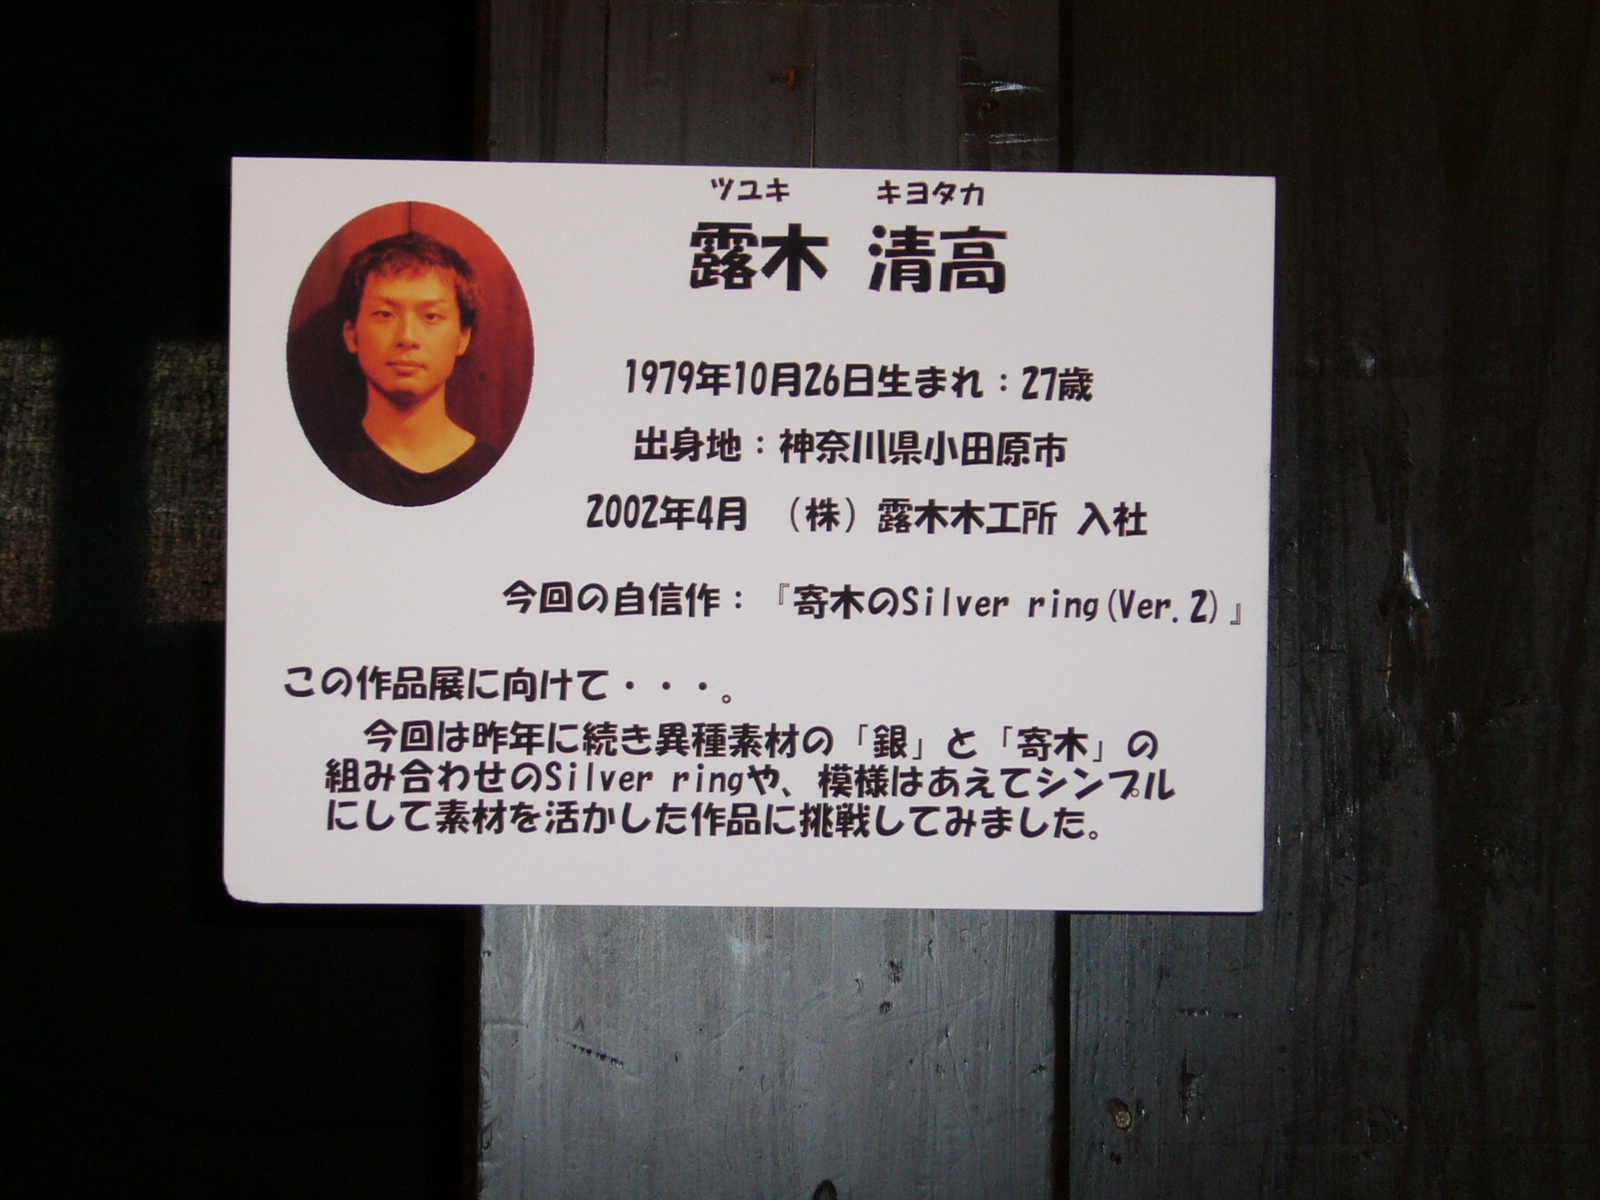 ツユキ キヨタカ
露木 清高
1979年10月26日生まれ：27歳
出身地：神奈川県小田原市
2002年4月 （株）露木木工所 入社
今回の自信作：『寄木のSilver ring(Ver.2)』
この作品展に向けて・・・。
今回は昨年に続き異種素材の「銀」と「寄木」の
組み合わせのSilver ringや、模様はあえてシンプル
にして素材を活かした作品に挑戦してみました。